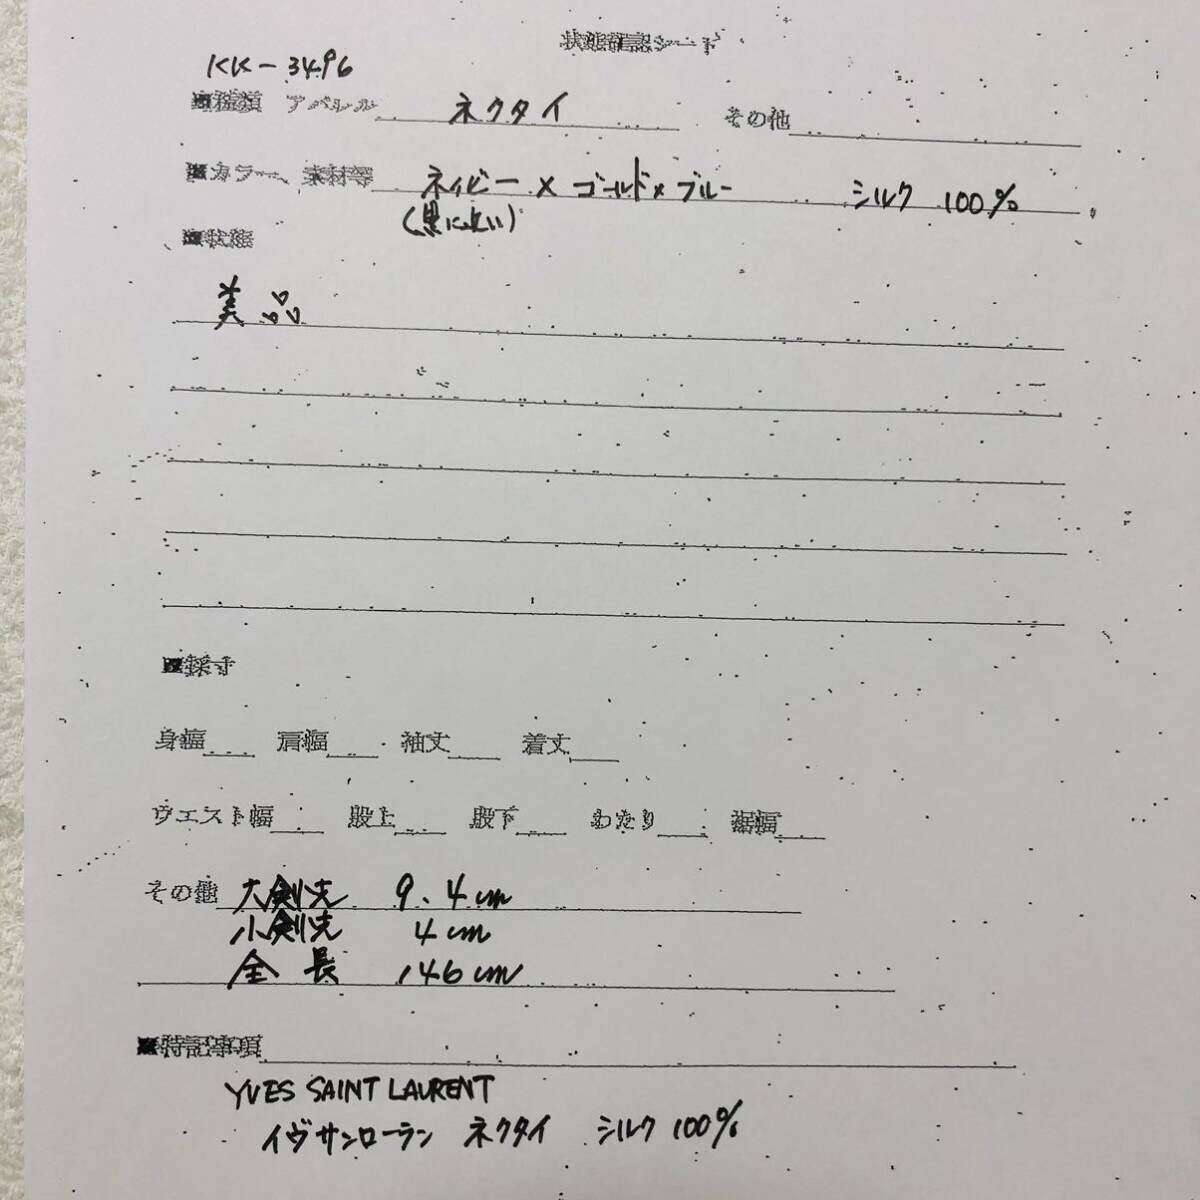 状態確認シート
KK-3496
■種類 アパレル ネクタイ その他
■カラー、素材等 ネイビー×ゴールド×ブルー シルク 100%
(黒に近い)
■状態
美品
■採寸
身幅 肩幅 袖丈 着丈
ウエスト幅 股上 股下 わたり 裾幅
その他 大剣先 9.4cm
小剣先 4cm
全長 146cm
■特記事項
YVES SAINT LAURENT
イヴサンローラン ネクタイ シルク 100%